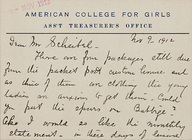 NOV 1912
AMERICAN COLLEGE FOR GIRLS
ASST TREASURER'S OFFICE
Nov 9. 1912
Dear Mr Scheibel.
There are four packages still due
from the packet post London and
as three of them are clothing the young
ladies are anxious to get them. Could
you put the spurs on George?
Also I would like the monthly
statement - in these days of